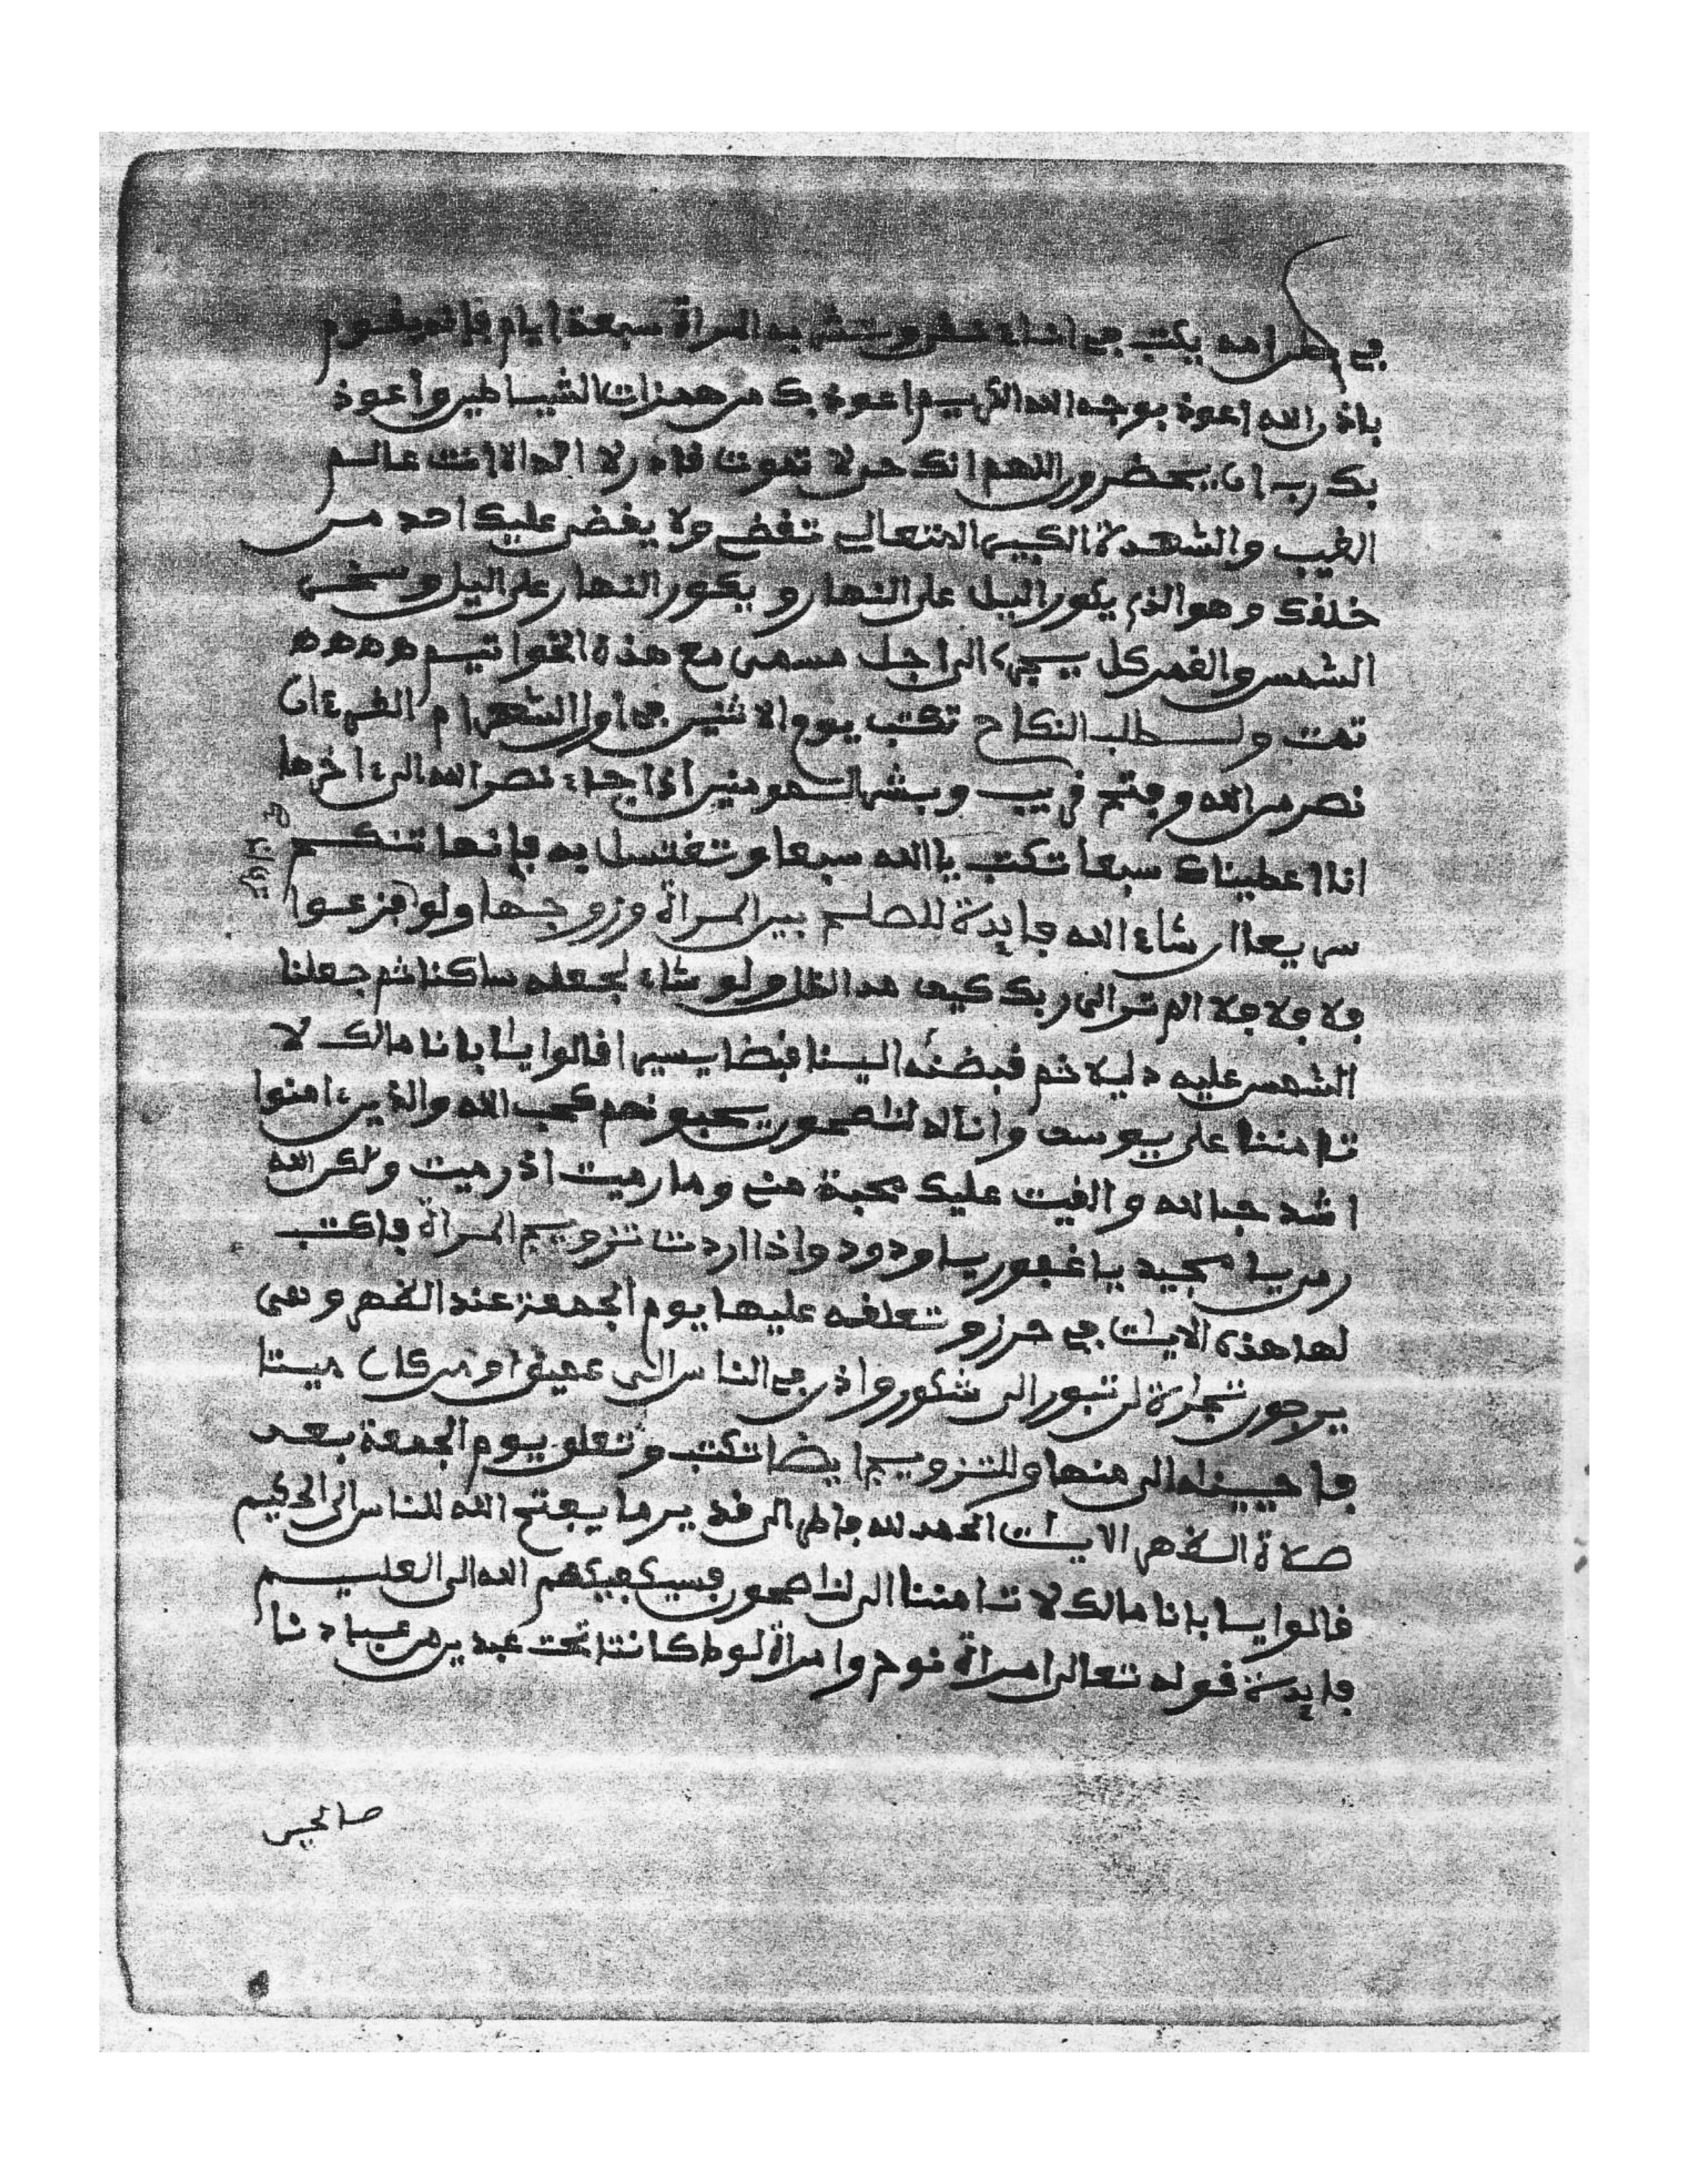 في بطن امه يكتب في اناء نقي وتشربه المراة سبعة ايام فإنه يقوم
باذن الله اعوذ بوجه الله الكريم اعوذ بك من همزات الشيساطين وأعوذ
بك رب ان يحضرون اللهم انك حي لا تموت قادر لا اله الا انت عالم
الغيب والشهدة الكبير المتعالي تقضي ولا يقضى عليك احد من
خلقك وهو الذي يكور اليل على النهار ويكور النهار على اليل وسخر
الشمس والقمر كل يجري الى اجل مسمى مع هذة الخواتيم ه ه ه ه ه
تمت ولطلب النكاح تكتب يوم الاثنين في أول الشهر ام القرءان
نصر من الله وفتح قريب وبشر المومنين اذا جاء نصر الله الىءاخرها
انا اعطيناك سبعا تكتب يا الله سبعا وتغتسل به فإنها تنكح
سريعا ان شاء الله فايدة للصلح بين المراة وزوجها ولو فزعوا
فلا فلا فلا الم تر الى ربك كيف مد الظل ولو شاء لجعله ساكنا ثم جعلنا
الشمس عليه دليلا ثم قبضنه الينا قبضا يسيرا قالوا يا ابانا مالك لا
تامننا على يوسف وانا له لناصحون يحبونهم كحب الله والذينءامنوا
اشد حبا لله والقيت عليك محبة مني وما رميت اذ رميت ولكن الله
رمى يا مجيد يا غفور يا ودود واذا اردت تزويج المراة فاكتب
لها هذه الايات في حرز وتعلقه عليها يوم الجمعة عند الظهر وهي
يرجون تجارة لن تبور الى شكور واذن في الناس الى عميق او من كان ميتا
فاحييناه الى منها وللتزويج ايضا تكتب وتعلق يوم الجمعة بعد
صلاة الظهر الايات الحمد لله فاطر الى قدير ما يفتح الله للناس الى الحكيم
قالوا يا ابانا مالك لا تامننا الى لناصحون فسيكفيكهم الله الى العليم
فايدة قوله تعالى امراة نوح وامراة لوط كانتا تحت عبدين من عبادنا
صالحين